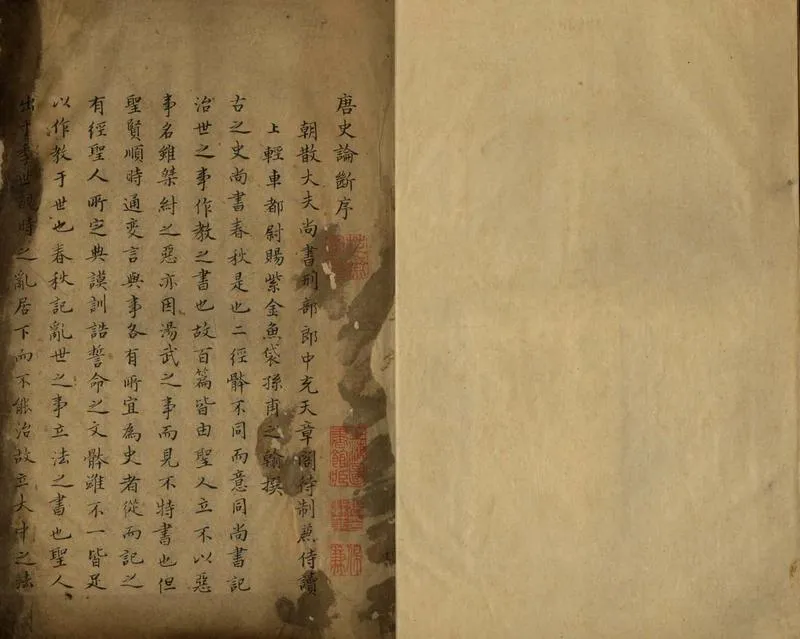 唐史論斷序
朝散大夫尚書刑部郎中充天章閣待制蒹侍讀
上輕車都尉賜紫金魚袋孫甫之翰撰
古之史尚書春秋是也二經骵不同而意同尚書記
治世之事作教之書也故百篇皆由聖人立不以惡
事名雖桀紂之惡亦因湯武之事而見不特書也但
聖賢順時通變言與事各有所宜為史者從而記之
有經聖人所定典謨訓誥誓命之文骵雖不一皆足
以作教于世也春秋記亂世之事立法之書也聖人
出于季世覩時之亂居下而不能治故立大中之法